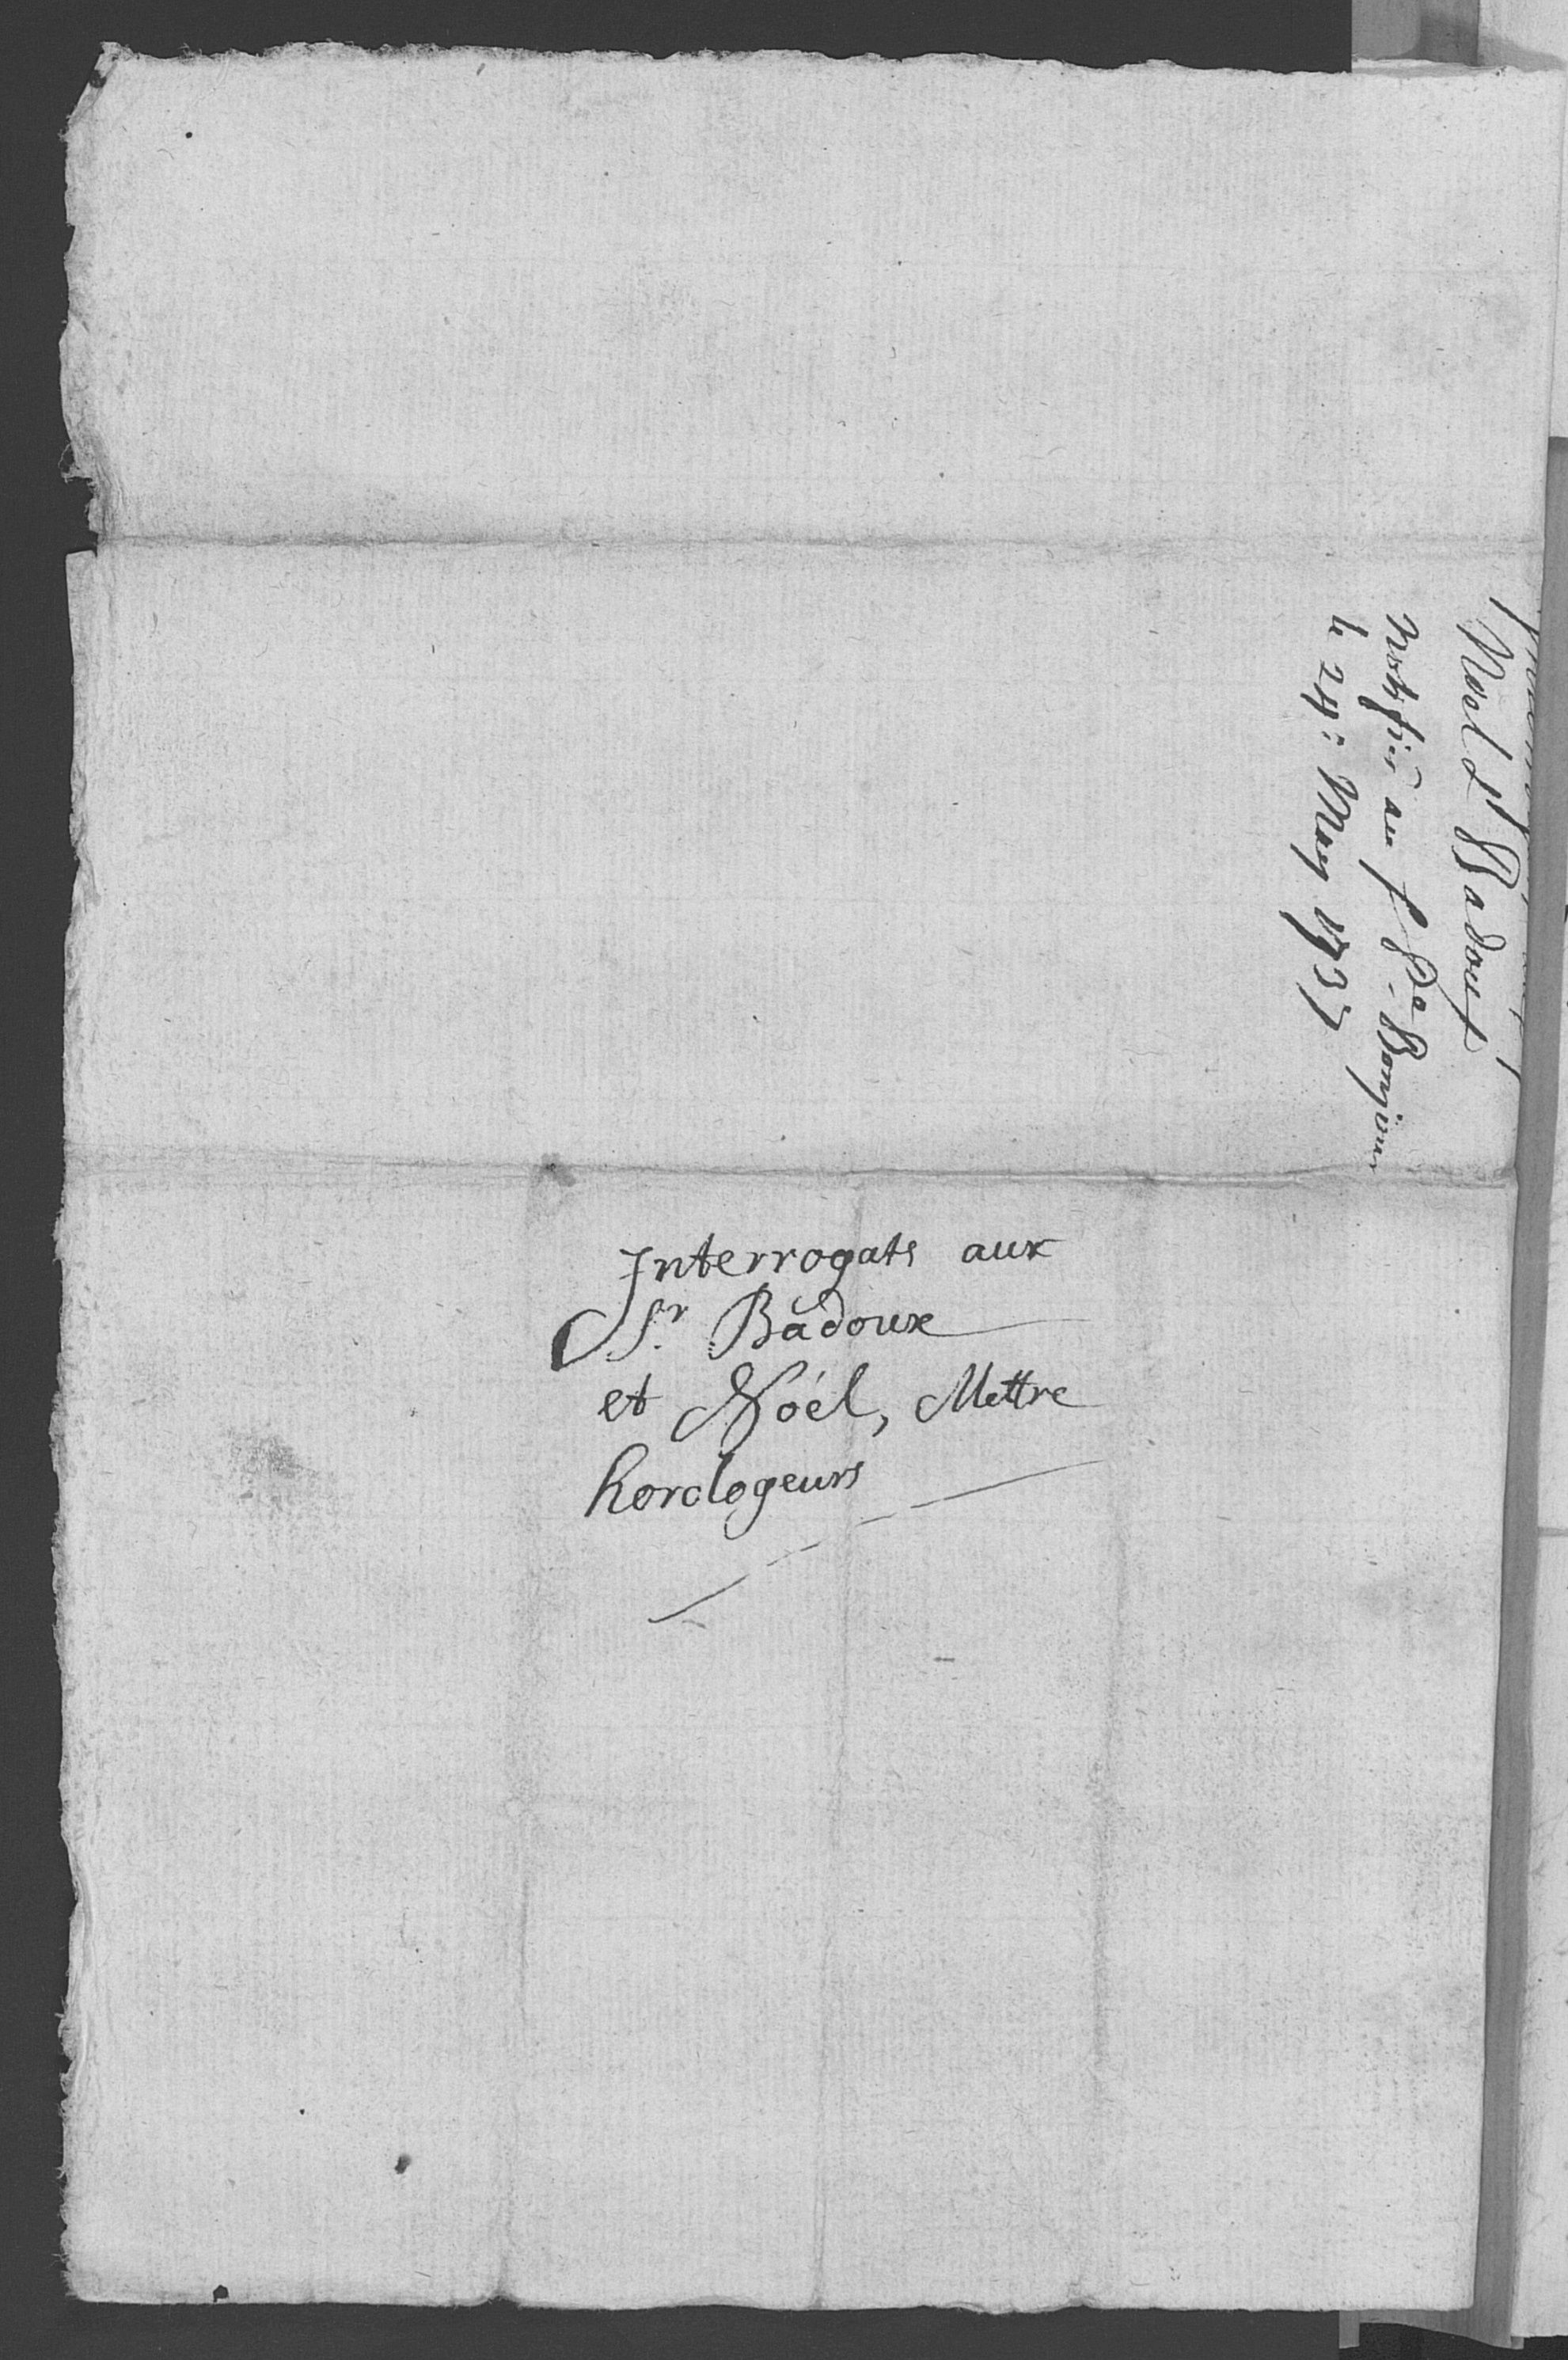 Noel & Badoux
Notifié au Sr Pe. Bonjour
le 24: May 1737
Interrogats aux
Sr. Badoux
et Noél, Mettre
horologeurs